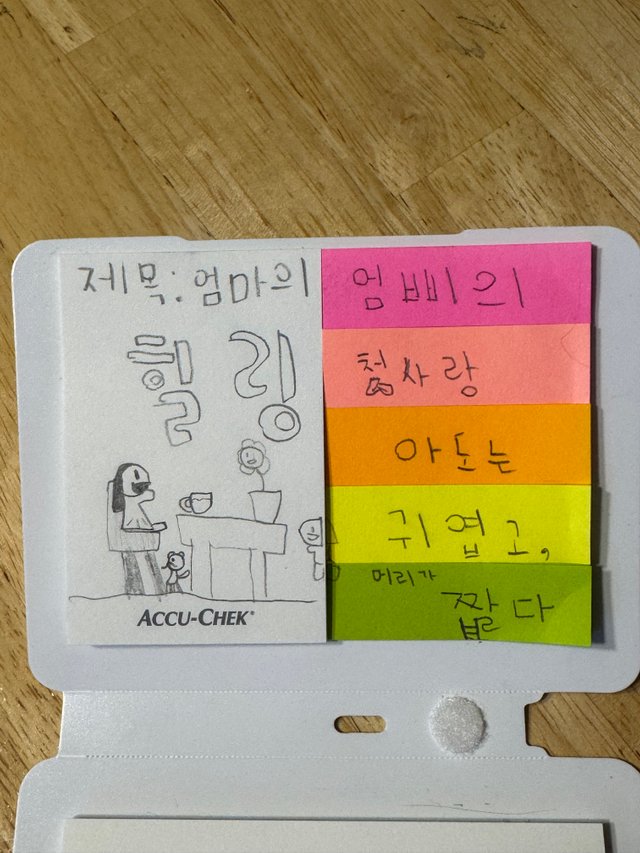 제목: 엄마의
힐링
ACCU-CHEK®
엄빠의
첫사랑
아도는
귀엽고,
머리가
짧다